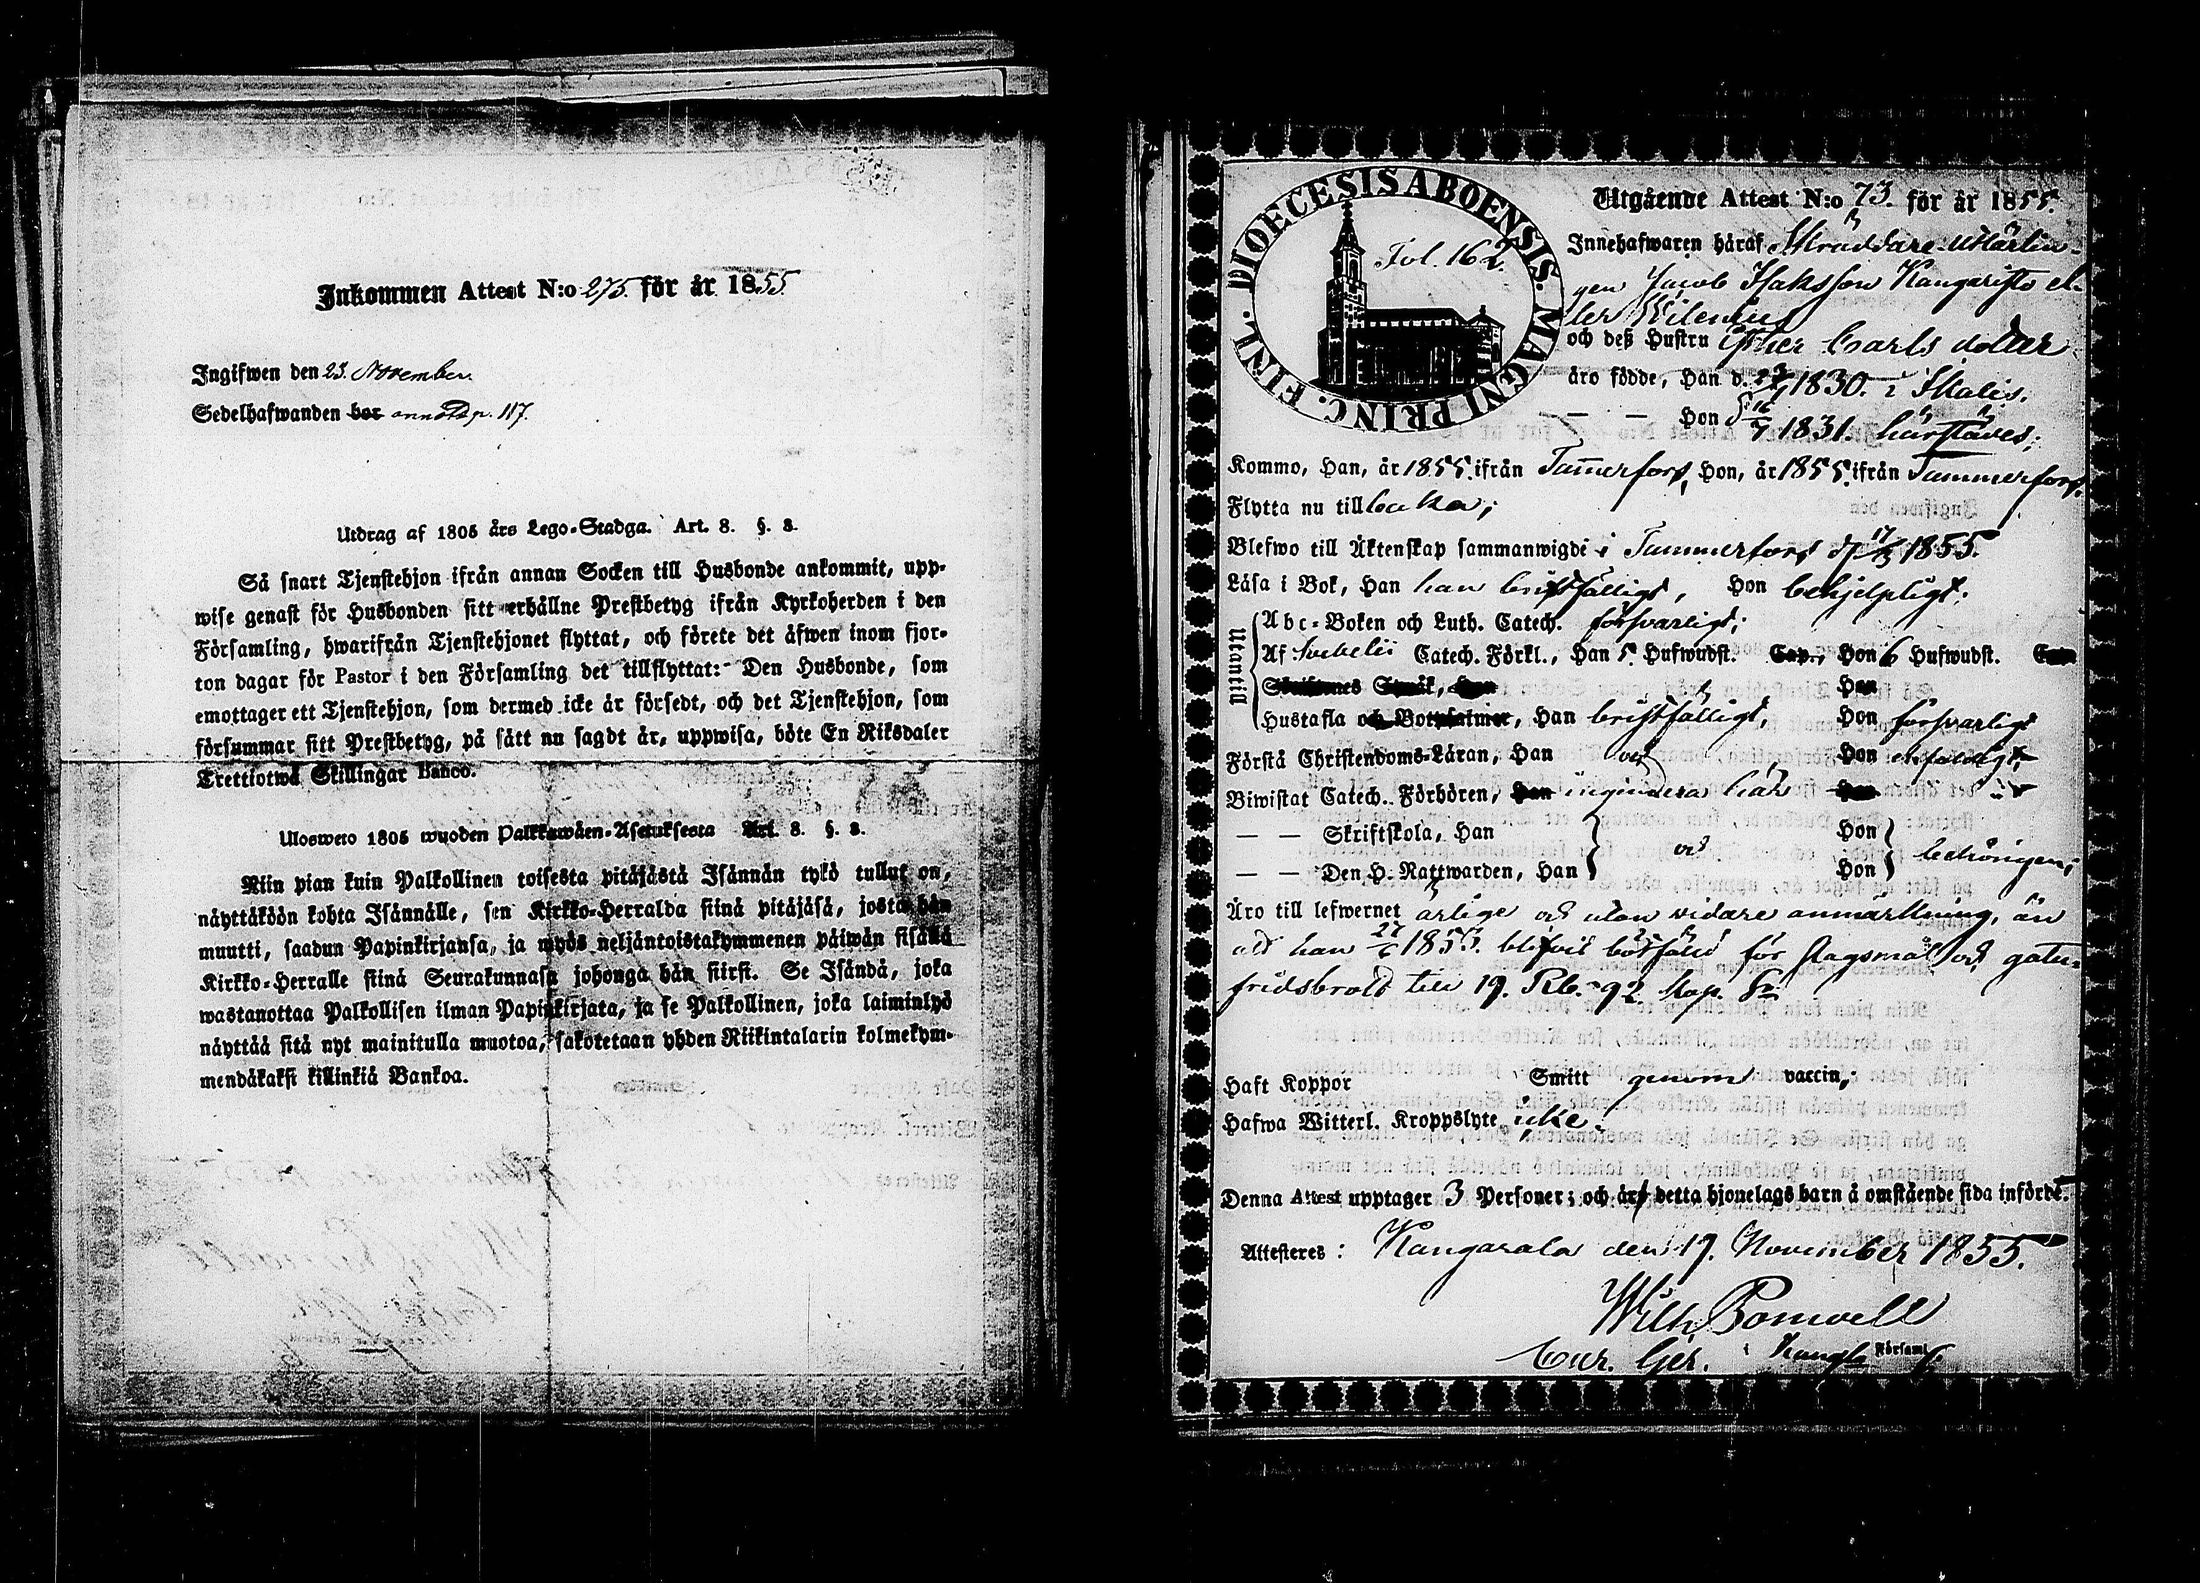 Inkommen Attest N:o 275. för år 1855
Ingifwen den 23. November.
Sedelhafwanden bor annot. p. 117.
Utdrag af 1805 års Lego-Stadga. Art. 8. §. 3.
Så snart Tjenstehjon ifrån annan Socken till Husbonde ankommit, upp-
wise genast för Husbonden sitt erhållne Prestbetyg ifrån Kyrkoherden i den
Församling, hwarifrån Tjenstehjonet flyttat, och förete det äfwen inom fjor-
ton dagar för Pastor i den Församling det tillflyttat: Den Husbonde, som
emottager ett Tjenstehjon, som dermed icke är försedt, och det Tjenstehjon, som
försummar sitt Prestbetyg, på sätt nu sagdt är, uppwisa, böte En Riksdaler
Trettiotwå Skillingar Banco.
Ulosweto 1805 wuoden Palkkawäen-Asetuksesta Art. 8. §. 3.
Niin pian kuin Palkollinen toisesta pitäjästä Isännän tykö tullut on,
näyttäköön kohta Isännälle, sen Kirkko-Herralda siinä pitäjäsä, josta hän
muutti, saadun Papinkirjansa, ja myös neljäntoistakymmenen päiwän sisällä
Kirkko-Herralle siinä Seurakunnasa johonga hän siirsi. Se Isändä, joka
wastanottaa Palkollisen ilman Papinkirjata, ja se Palkollinen, joka laiminlyö
näyttää sitä nyt mainitulla muotoa, sakotetaan yhden Riikintalarin kolmekym-
mendäkaksi killinkiä Bankoa.
DIOECESIS ABOENSIS. MAGNI PRINC. FINL.
Fol. 162.
Utgående Attest N:o 73. för år 1855.
Innehafwaren häraf Skräddare-Lärlin-
gen Jacob Isaksson Kangaristo el-
ler Wilenius
och deß Hustru Esther Carls dotter
äro födde, Han d. 1830 i Ikalis.
— — Hon d. 16/7 1831. härstädes;
Kommo, Han, år 1855. ifrån Tammerfors, Hon, år 1855. ifrån Tammerfors.
Flytta nu tillbaka;
Blefwo till Äktenskap sammanwigde i Tammerfors d. 1855.
Läsa i Bok, Han han bristfälligt, Hon behjelpligt;
Utantill
Abc-Boken och Luth. Catech. försvarligt;
Af Svebelii Catech. Förkl., Han 5. Hufwudst. Cap., Hon 6 Hufwudst. Cap
Skriftenes Språk, Han Hon
Hustafla och Botpsalmer, Han bristfälligt, Hon försvarligt
Förstå Christendoms-Läran, Han od Hon enfaldigt,
Biwistat Catech. Förhören, Han ingendera här Hon
— — Skriftskola, Han od Hon behörigen;
— — Den H. Nattwarden, Han Hon
Äro till lefwernet ärlige och utan vidare anmärkning, än
att han 1855. blifvit bötfäld för slagsmål och gatu-
fridsbrott till 19. Rb. 92. kop. Sr
Haft Koppor Smitt genom vaccin;
Hafwa Witterl. Kroppslyte icke.
Denna Attest upptager 3 Personer; och äro detta hjonelags barn å omstående sida införde.
Attesteres: Kangasala den 19. November 1855.
Wilh. Bonwell
Cur. Ger. i Kangla Församl.